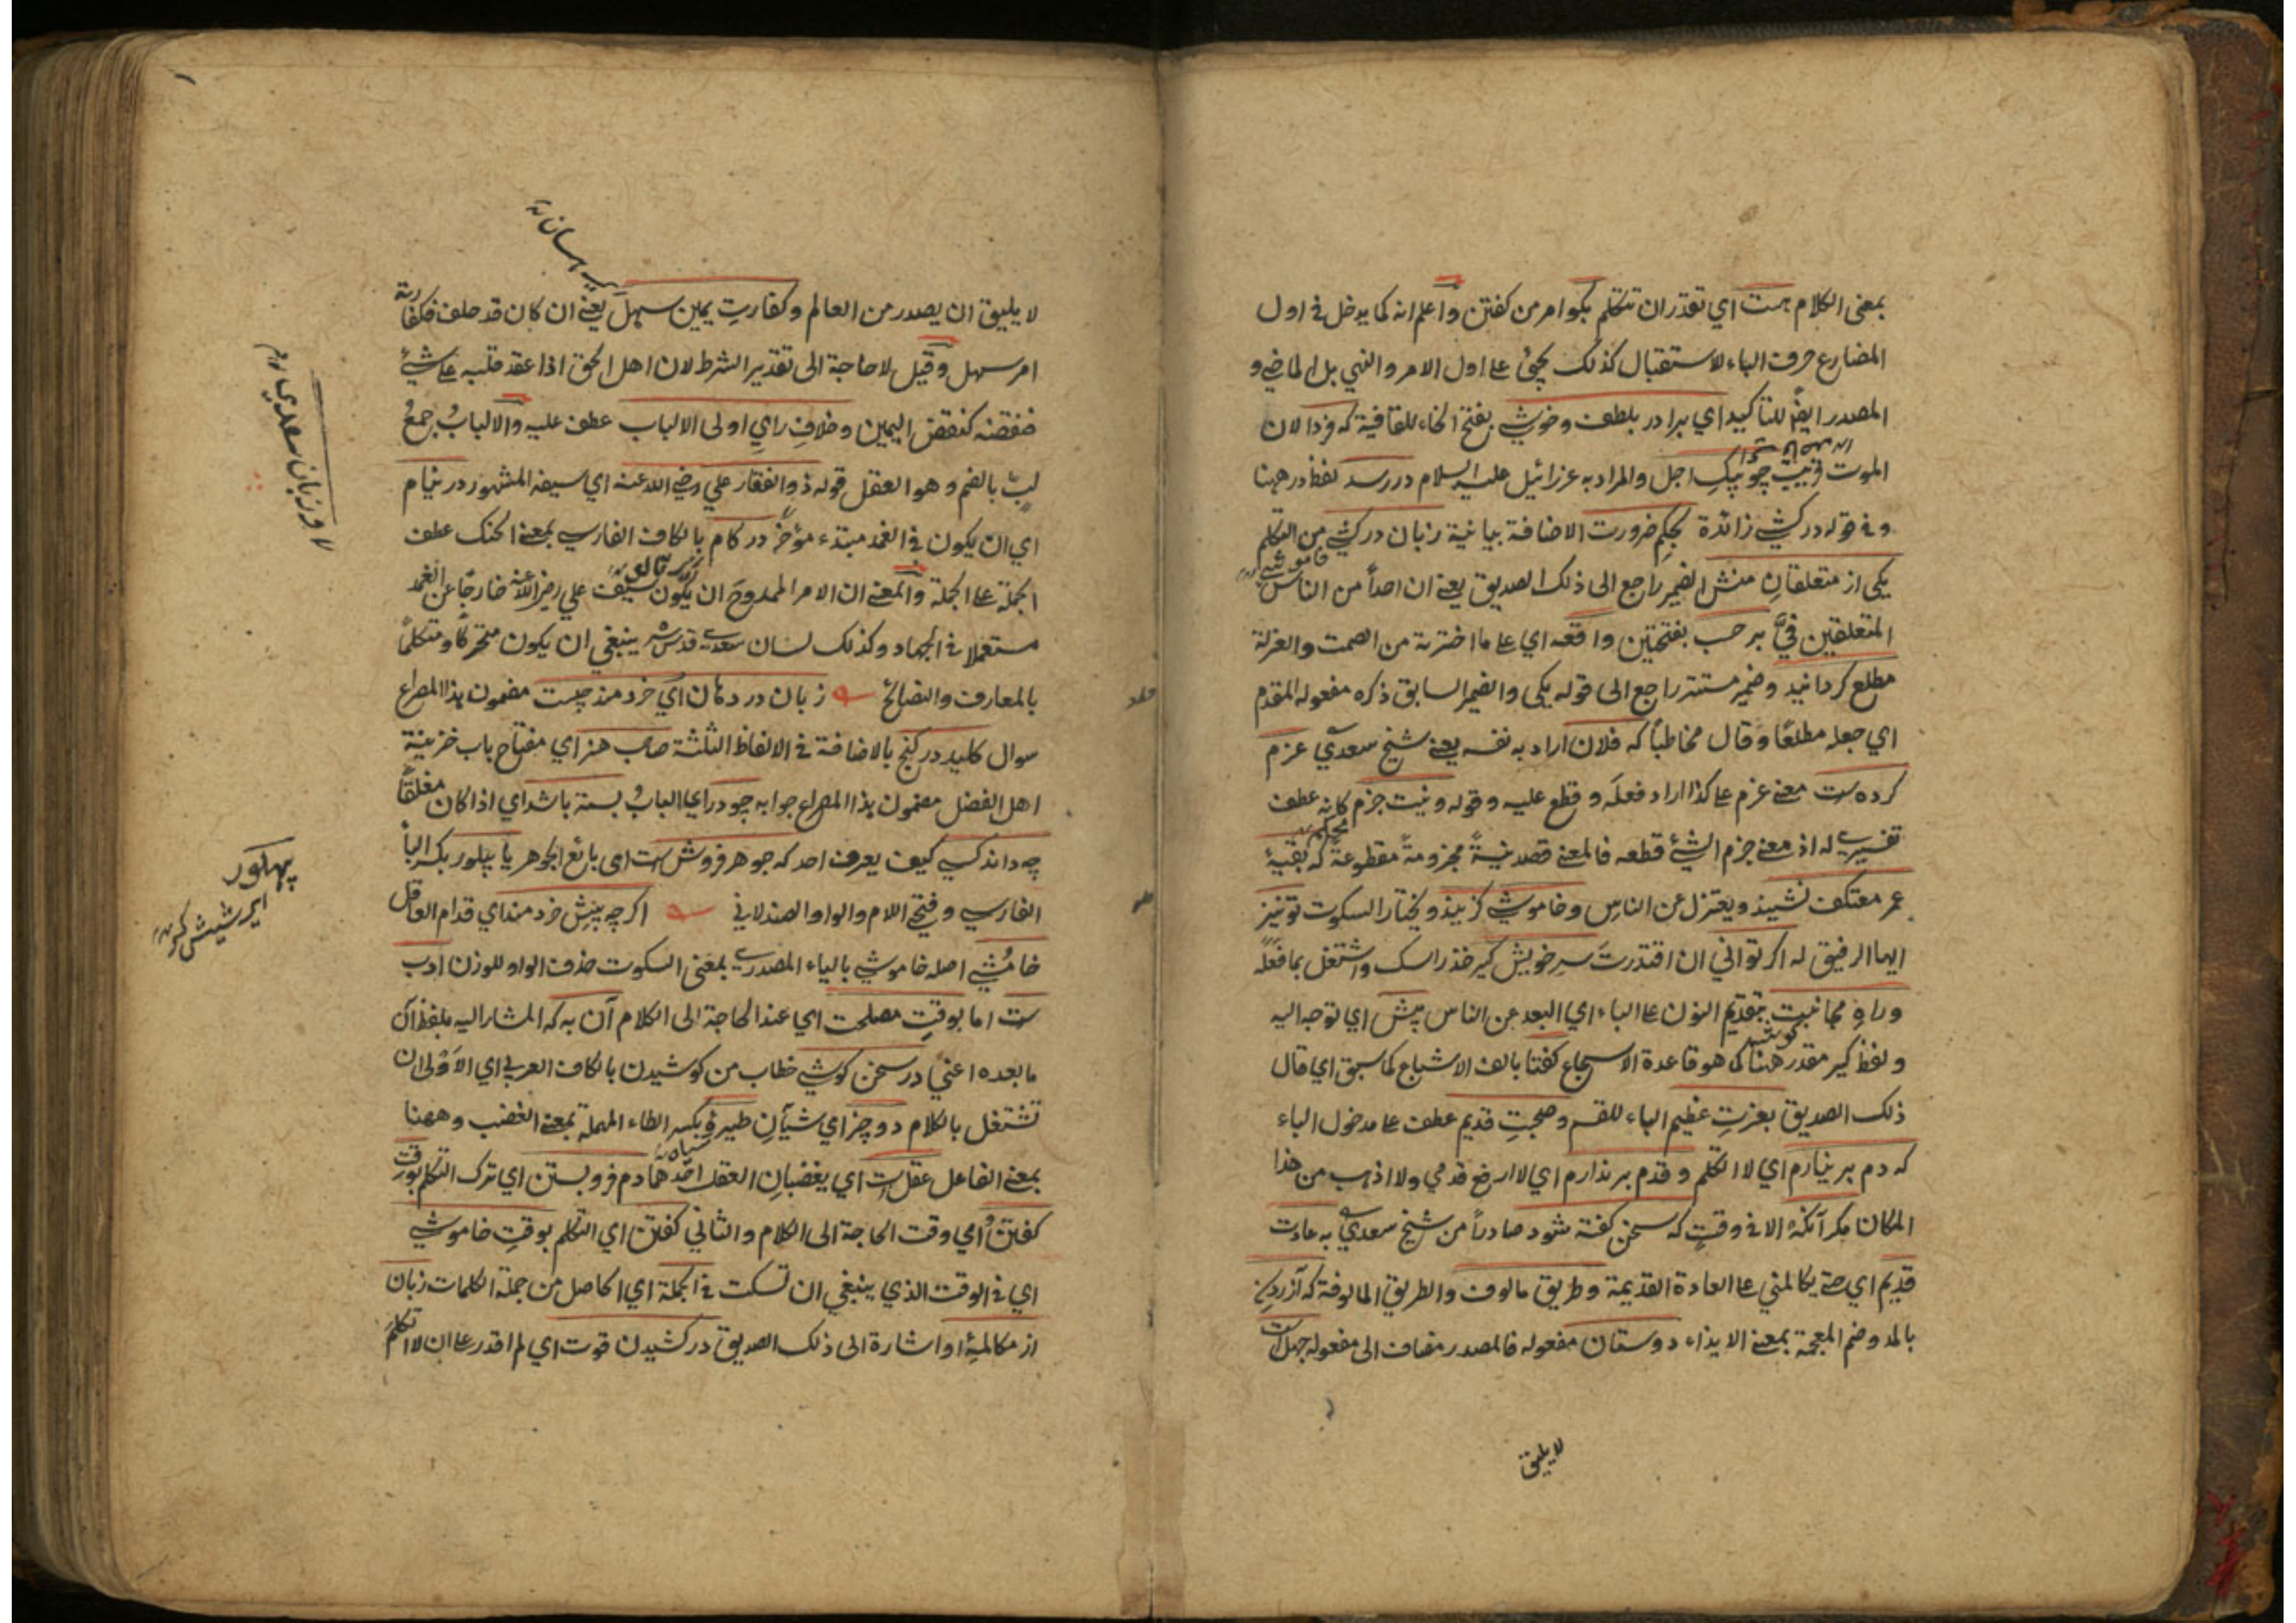 بمعنى الكلام هست اي تقدر ان تتكلم بكو امر من كفتن واعلم انه كما يدخل في اول
المضارع حرف الباء للاستقبال كذلك يجيئ على اول الامر والنهي بل الماضي و
المصدر ايضا للتاكيد اي برادر بلطف وخوشي بفتح الخاء للقافية كه فردا لان
الموت قريب چو پيك اجل والمراد به عزرائيل عليه السلام در رسد لفظ در ههنا
وفي قوله در كشي زائدة بحكم ضرورت الاضافة بيانية زبان در كشي من التكلم
خاموشي
يكى از متعلقان منش الضمير راجع الى ذلك الصديق يعني ان احداً من الناس
المتعلقين في بر حسب بفتحتين واقعه اي على ما اخترته من الصمت والعزلة
مطلع كردانيد وضمير مستتر راجع الى قوله يكى والضمير السابق ذكره مفعوله المقدم
اي جعله مطلعًا وقال مخاطباً كه فلان اراد به نفسه يعني شيخ سعدي عزم
كرده ست معنى عزم على كذا اراد فعله وقطع عليه وقوله ونيت جزم كانه عطف
تفسيري له اذ معنى جزم الشئ قطعه فالمعنى قصد نيةً مجزومةً مقطوعةً كه بقيهٔ
عمر معتكف نشيند ويعتزل عن الناس وخاموشي كزيند ويختار السكوت تو نيز
ايها الرفيق له اكر تواني ان اقتدرت سر خويش كير خذ راسك واشتغل بما فعله
وراه مجانبت بتقديم النون على الباء اي البعد عن الناس پيش اي توجه اليه
ولفظ كير مقدر ههنا كما هو قاعدة الاسجاع كفتا بالف الاشباع كما سبق اي قال
ذلك الصديق بعزت عظيم الباء للقسم وصحبت قديم عطف على مدخول الباء
كه دم بر نيارم اي لا اتكلم وقدم بر ندارم اي لا ارفع قدمي ولا اذهب من هذا
المكان مكر آنكه الا في وقت كه سخن كفته شود صادراً من شيخ سعدي به عادت
قديم اي حتى يكالمني على العادة القديمة وطريق مالوف والطريق المالوفة كه آزردن
بالمد وضم المعجمة بمعنى الايذاء دوستان مفعوله فالمصدر مضاف الى مفعوله جهل ست
لا يليق
لا يليق ان يصدر من العالم وكفارت يمين سهل يعني ان كان قد حلف فكفارته
امر سهل وقيل لا حاجة الى تقدير الشرط لان اهل الحق اذا عقد قلبه على شئ
فنقضه كنقض اليمين وخلاف راي اولى الالباب عطف عليه والالباب جمع
لب بالضم وهو العقل قوله ذو الفقار علي رضي الله عنه اي سيفه المشهور در نيام
اي ان يكون في الغمد مبتدء مؤخر در كام بالكاف الفارسي بمعنى الحنك عطف
الجملة على الجملة والمعنى ان الامر الممدوح ان يكون سيف علي رضي الله عنه خارجًا عن الغمد
مستعملا في الجهاد وكذلك لسان سعدي قدس سره ينبغي ان يكون متحركًا ومتكلمًا
بالمعارف والنصائح زبان در دهان اي خردمند چيست مضمون هذا المصراع
سوال كليد در كنج بالاضافة في الالفاظ الثلثة صاحب هنر اي مفتاح باب خزينة
اهل الفضل مضمون هذا المصراع جوابه چو در اي الباب بسته باشد اي اذا كان مغلقًا
چه داند كسي كيف يعرف احد كه جوهر فروش ست امى بائع الجوهر يا پيلور بكسر الباء
الفارسي وفتح اللام والواو الصندلاني اكر چه پيش خردمند اي قدام العاقل
خامشي اصله خاموشي بالياء المصدري بمعنى السكوت حذف الواو للوزن ادب
ست اما بوقت مصلحت اي عند الحاجة الى الكلام آن به كه المشار اليه بلفظ آن
ما بعده اعني در سخن كوشي خطاب من كوشيدن بالكاف العربي اي الاولى ان
تشتغل بالكلام دو چيز اي شيآن طيره بكسر الطاء المهملة بمعنى الغضب وههنا
بمعنى الفاعل عقل ست اي يغضبان العقل احدهما دم فروبستن اي ترك التكلم بوقت
كفتن امي وقت الحاجة الى الكلام والثاني كفتن اي التكلم بوقت خاموشي
اي في الوقت الذي ينبغي ان تسكت في الجملة اي الحاصل من جملة الكلمات زبان
از مكالمهٔ او اشارة الى ذلك الصديق در كشيدن قوت اي لم اقدر على ان لا اتكلم
لا وزبان سعدي
پهلور